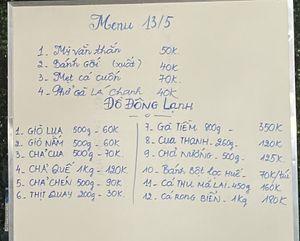 Menu 13/5
1 - Mì vằn thắn 50K
2 - Bánh gối (xuất) 40K
3 - Mẹt cá cuốn 70K
4 - Phở gà lá chanh 40K
ĐỒ ĐÔNG LẠNH
1. GIÒ LỤA 500g - 60K
2. GIÒ NẤM 500g - 60K
3. CHẢ CUA 500g - 70K
4. CHẢ QUẾ 1Kg - 120K
5. CHẢ CHÉN 500g - 90K
6. THỊT QUAY 200g - 30K
7. GÀ TIỀM 800g - 350K
8. CUA THANH - 260g - 120K
9. CHẢ NƯỚNG - 500g - 125K
10 - Bánh bột lọc Huế - 70K/túi
11 - CÁ THU MÁ LAI - 450g 160K
12 - CÁ RONG BIỂN - 1Kg 180K